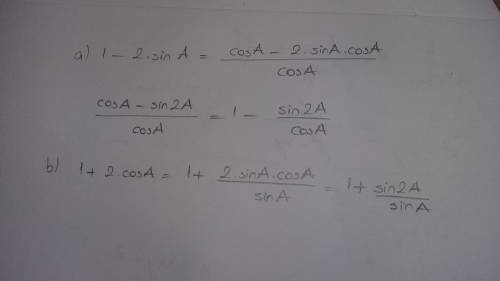 a) 1 - 2.sin A = cosA - 2.sinA.cosA / cosA
cosA - sin2A / cosA = 1 - sin2A / cosA
b) 1 + 2.cosA = 1 + 2.sinA.cosA / sinA = 1 + sin2A / sinA